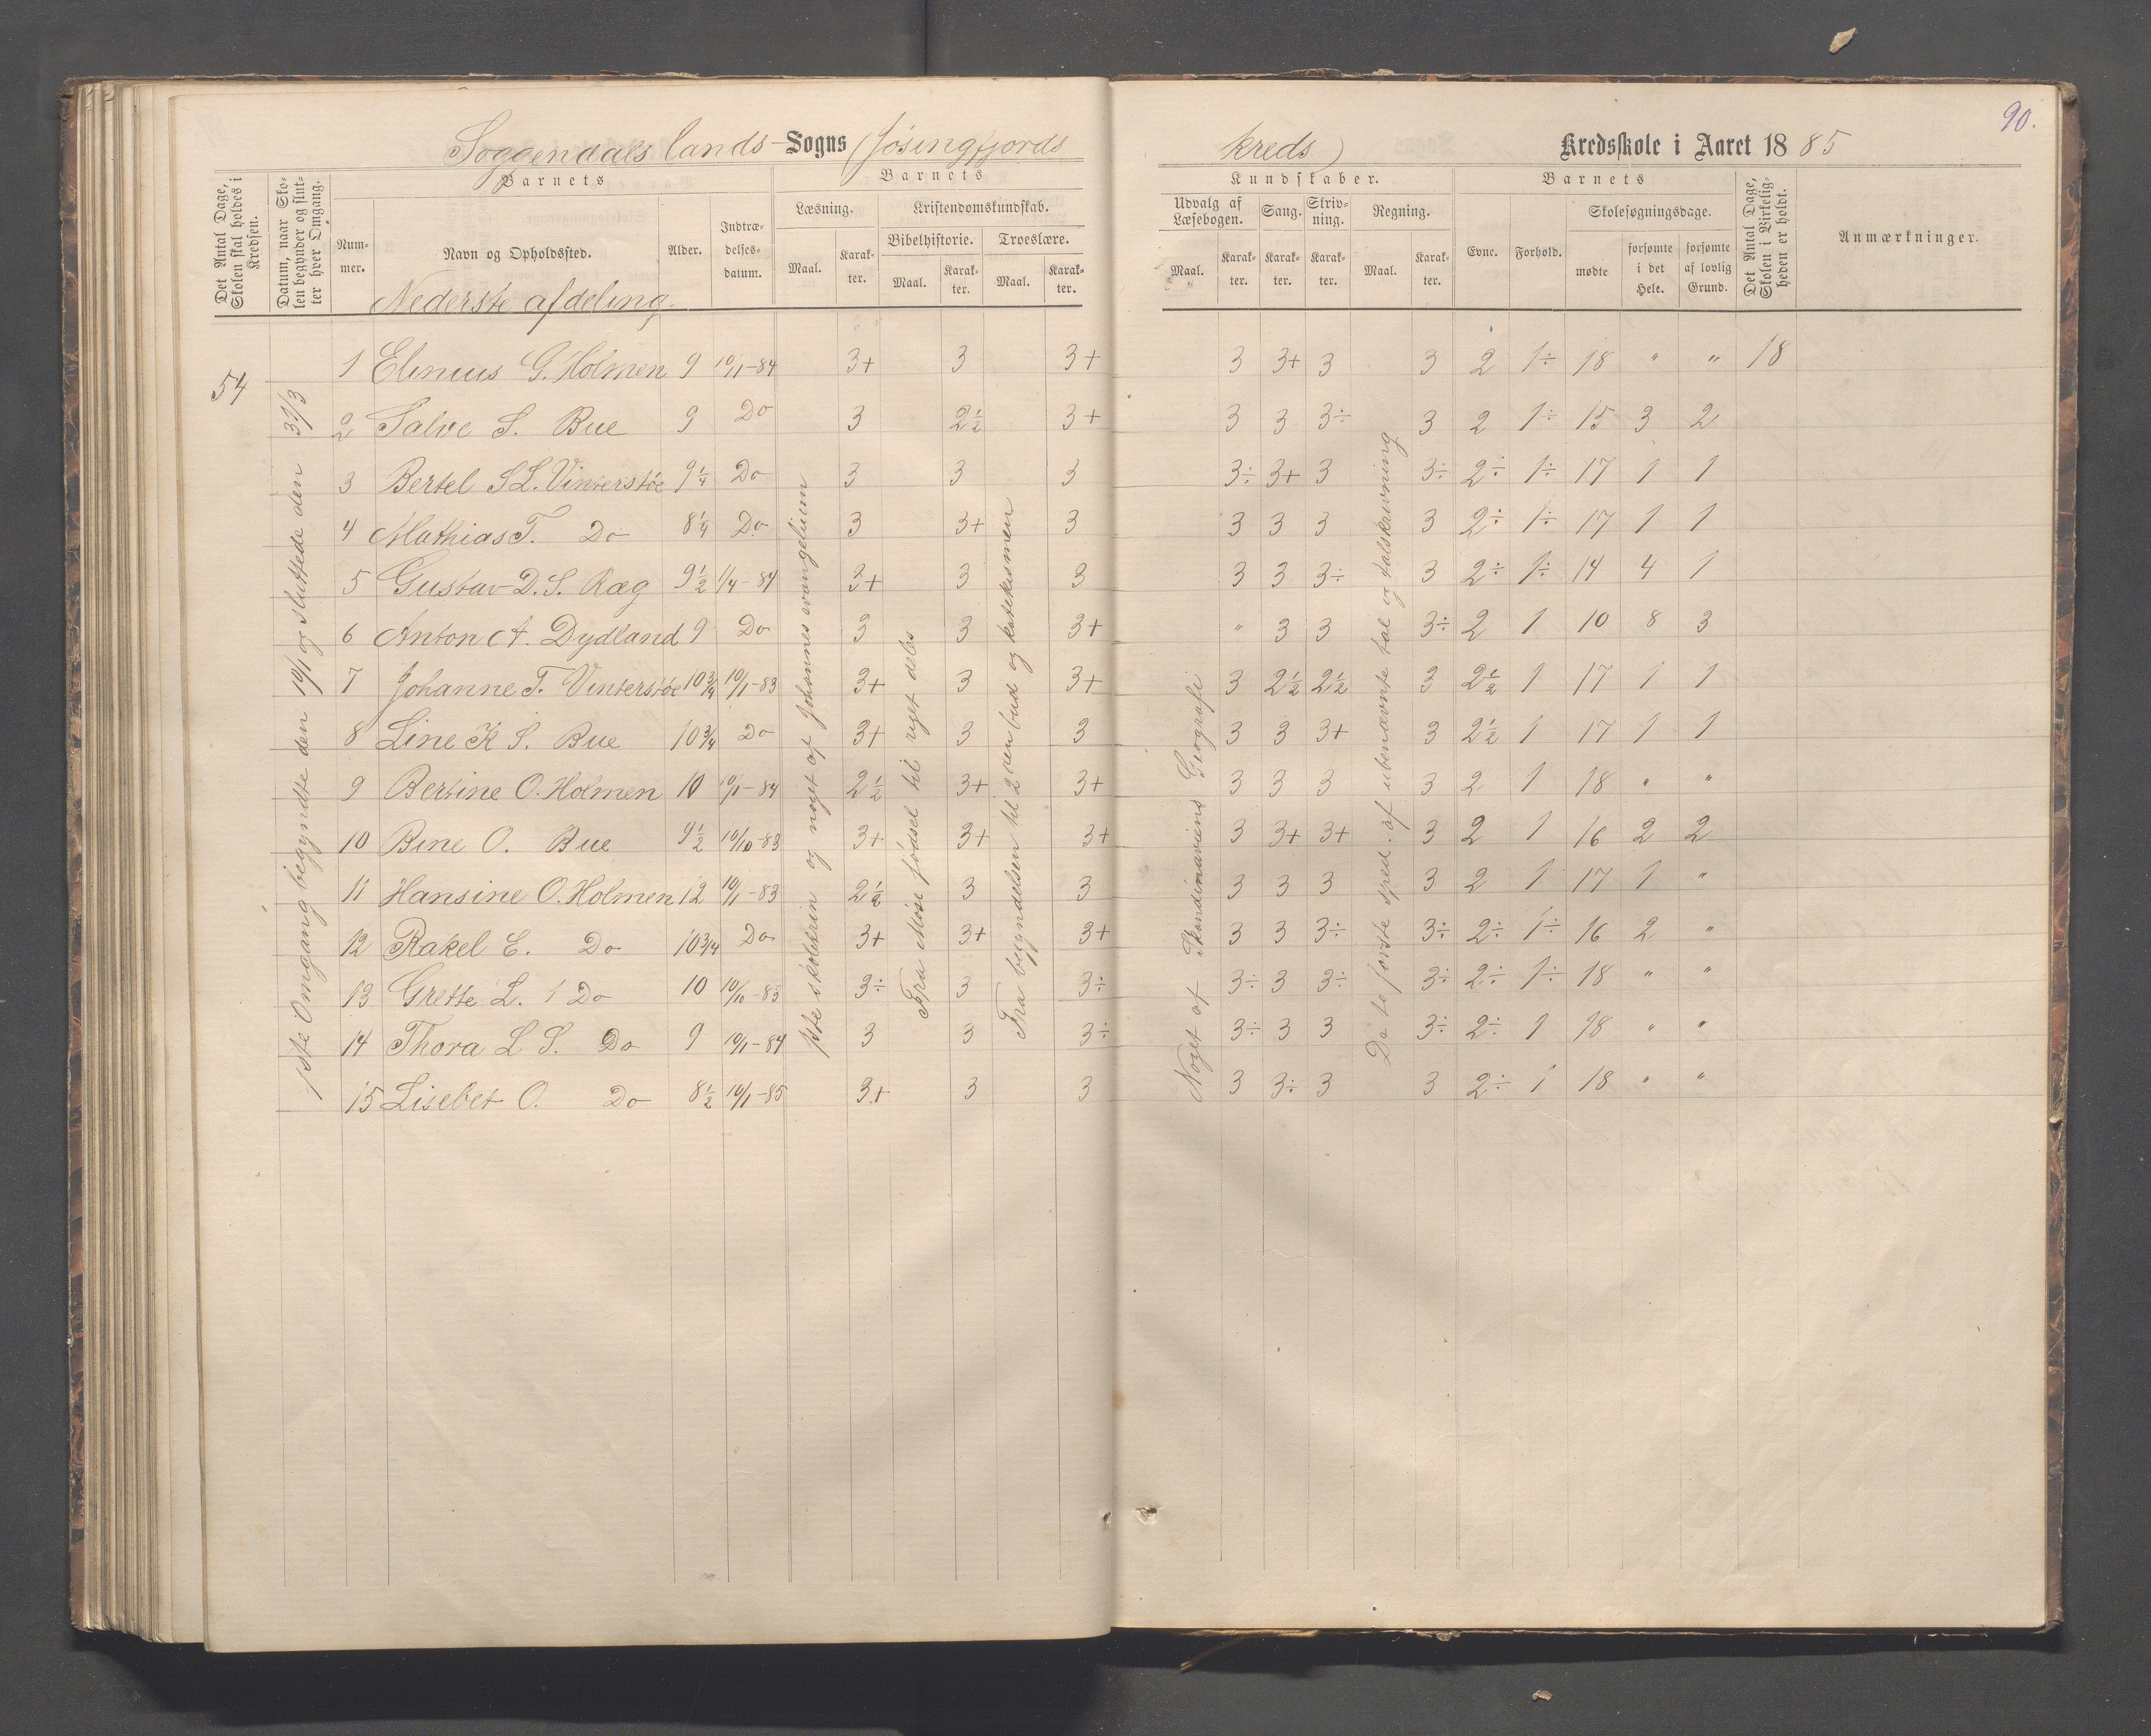 90.
Soggendals lands - Sogns (Jösingfjords kreds) Kredsskole i Aaret 1885
Det Antal Dage, Skolen skal holdes i Kredsen.
Datum, naar Skolen begynder og slutter hver Omgang.
Barnets
Nummer.
Navn og Opholdssted.
Alder.
Indtrædelsesdatum.
Barnets
Læsning.
Maal.
Karakter.
Kristendomskundskab.
Bibelhistorie.
Maal.
Karakter.
Troeslære.
Maal.
Karakter.
Kundskaber.
Udvalg af Læsebogen.
Maal.
Karakter.
Sang.
Karakter.
Skrivning.
Karakter.
Regning.
Maal.
Karakter.
Barnets
Evne.
Forhold.
Skolesøgningsdage.
mødte
forsømte i det Hele.
forsømte af lovlig Grund.
Det Antal Dage, Skolen i Virkeligheden er holdt.
Anmærkninger.
Nederste afdeling.
54
1ste Omgang begyndte den 10/1 og sluttede den 31/3
1 Elinius G. Holmen 9 10/1-84 3+ 3 3+ 3 3+ 3 3 2 1÷ 18 " " 18
2 Salve S. Bue 9 Do 3 2½ 3+ 3 3 3÷ 3 2 1÷ 15 3 2
3 Bertel S L. Vinterstöe 9¼ Do 3 3 3 3÷ 3+ 3 3÷ 2÷ 1÷ 17 1 1
4 Mathias T. Do 8¼ Do 3 3+ 3 3 3 3 3 2÷ 1÷ 17 1 1
5 Gustav D. S. Ræg 9½ 1/4-84 3+ 3 3 3 3 3÷ 3 2÷ 1÷ 14 4 1
6 Anton A. Dydland 9 Do 3 3 3+ " 3 3 3÷ 2 1 10 8 3
7 Johanne T. Vinterstöe 10¾ 10/1-83 3+ 3 3+ 3 2½ 2½ 3 2½ 1 17 1 1
8 Line K S. Bue 10¾ Do 3+ 3 3 3 3 3+ 3 2½ 1 17 1 1
9 Bertine O. Holmen 10 10/1-84 2½ 3+ 3+ 3 3 3 3 2 1 18 " "
10 Bine O. Bue 9½ 10/10-83 3+ 3+ 3+ 3 3+ 3+ 3 2 1 16 2 2
11 Hansine O. Holmen 12 10/1-83 2½ 3 3 3 3 3 3 2 1 17 1 "
12 Rakel E. Do 10¾ Do 3+ 3+ 3+ 3 3 3÷ 3÷ 2÷ 1÷ 16 2 "
13 Grette L. Do 10 10/10-83 3÷ 3 3÷ 3÷ 3 3÷ 3÷ 2÷ 1÷ 18 " "
14 Thora L S. Do 9 10/1-84 3 3 3÷ 3÷ 3 3 3÷ 2÷ 1 18 " "
15 Lisebet O. Do 8½ 10/1-85 3+ 3 3 3 3÷ 3 3 2÷ 1 18 " "
og noget af Johannes evangelium
Fra Mose fødsel til
Fra begyndelsen til 2 den bud og katekismen
Noget af Skandinaviens Geografi
De to første spred. af ubenævnte tal og talskrivning